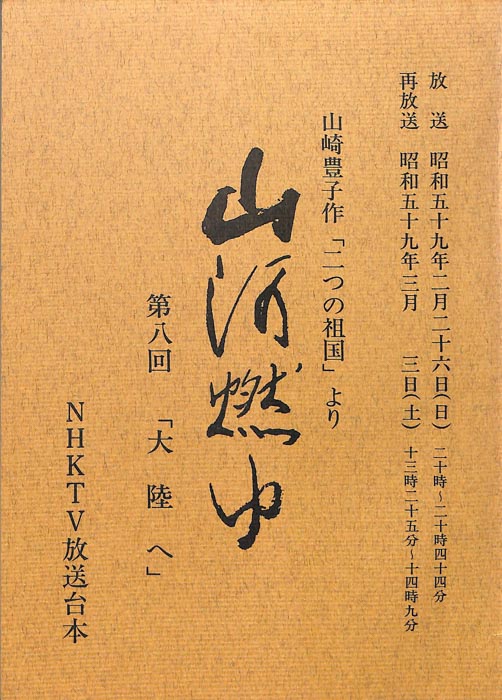 放送 昭和五十九年二月二十六日(日) 二十時～二十時四十四分
再放送 昭和五十九年三月 三日(土) 十三時二十五分～十四時九分
山崎豊子作「二つの祖国」より
山河燃ゆ
第八回 「大陸へ」
NHKTV放送台本